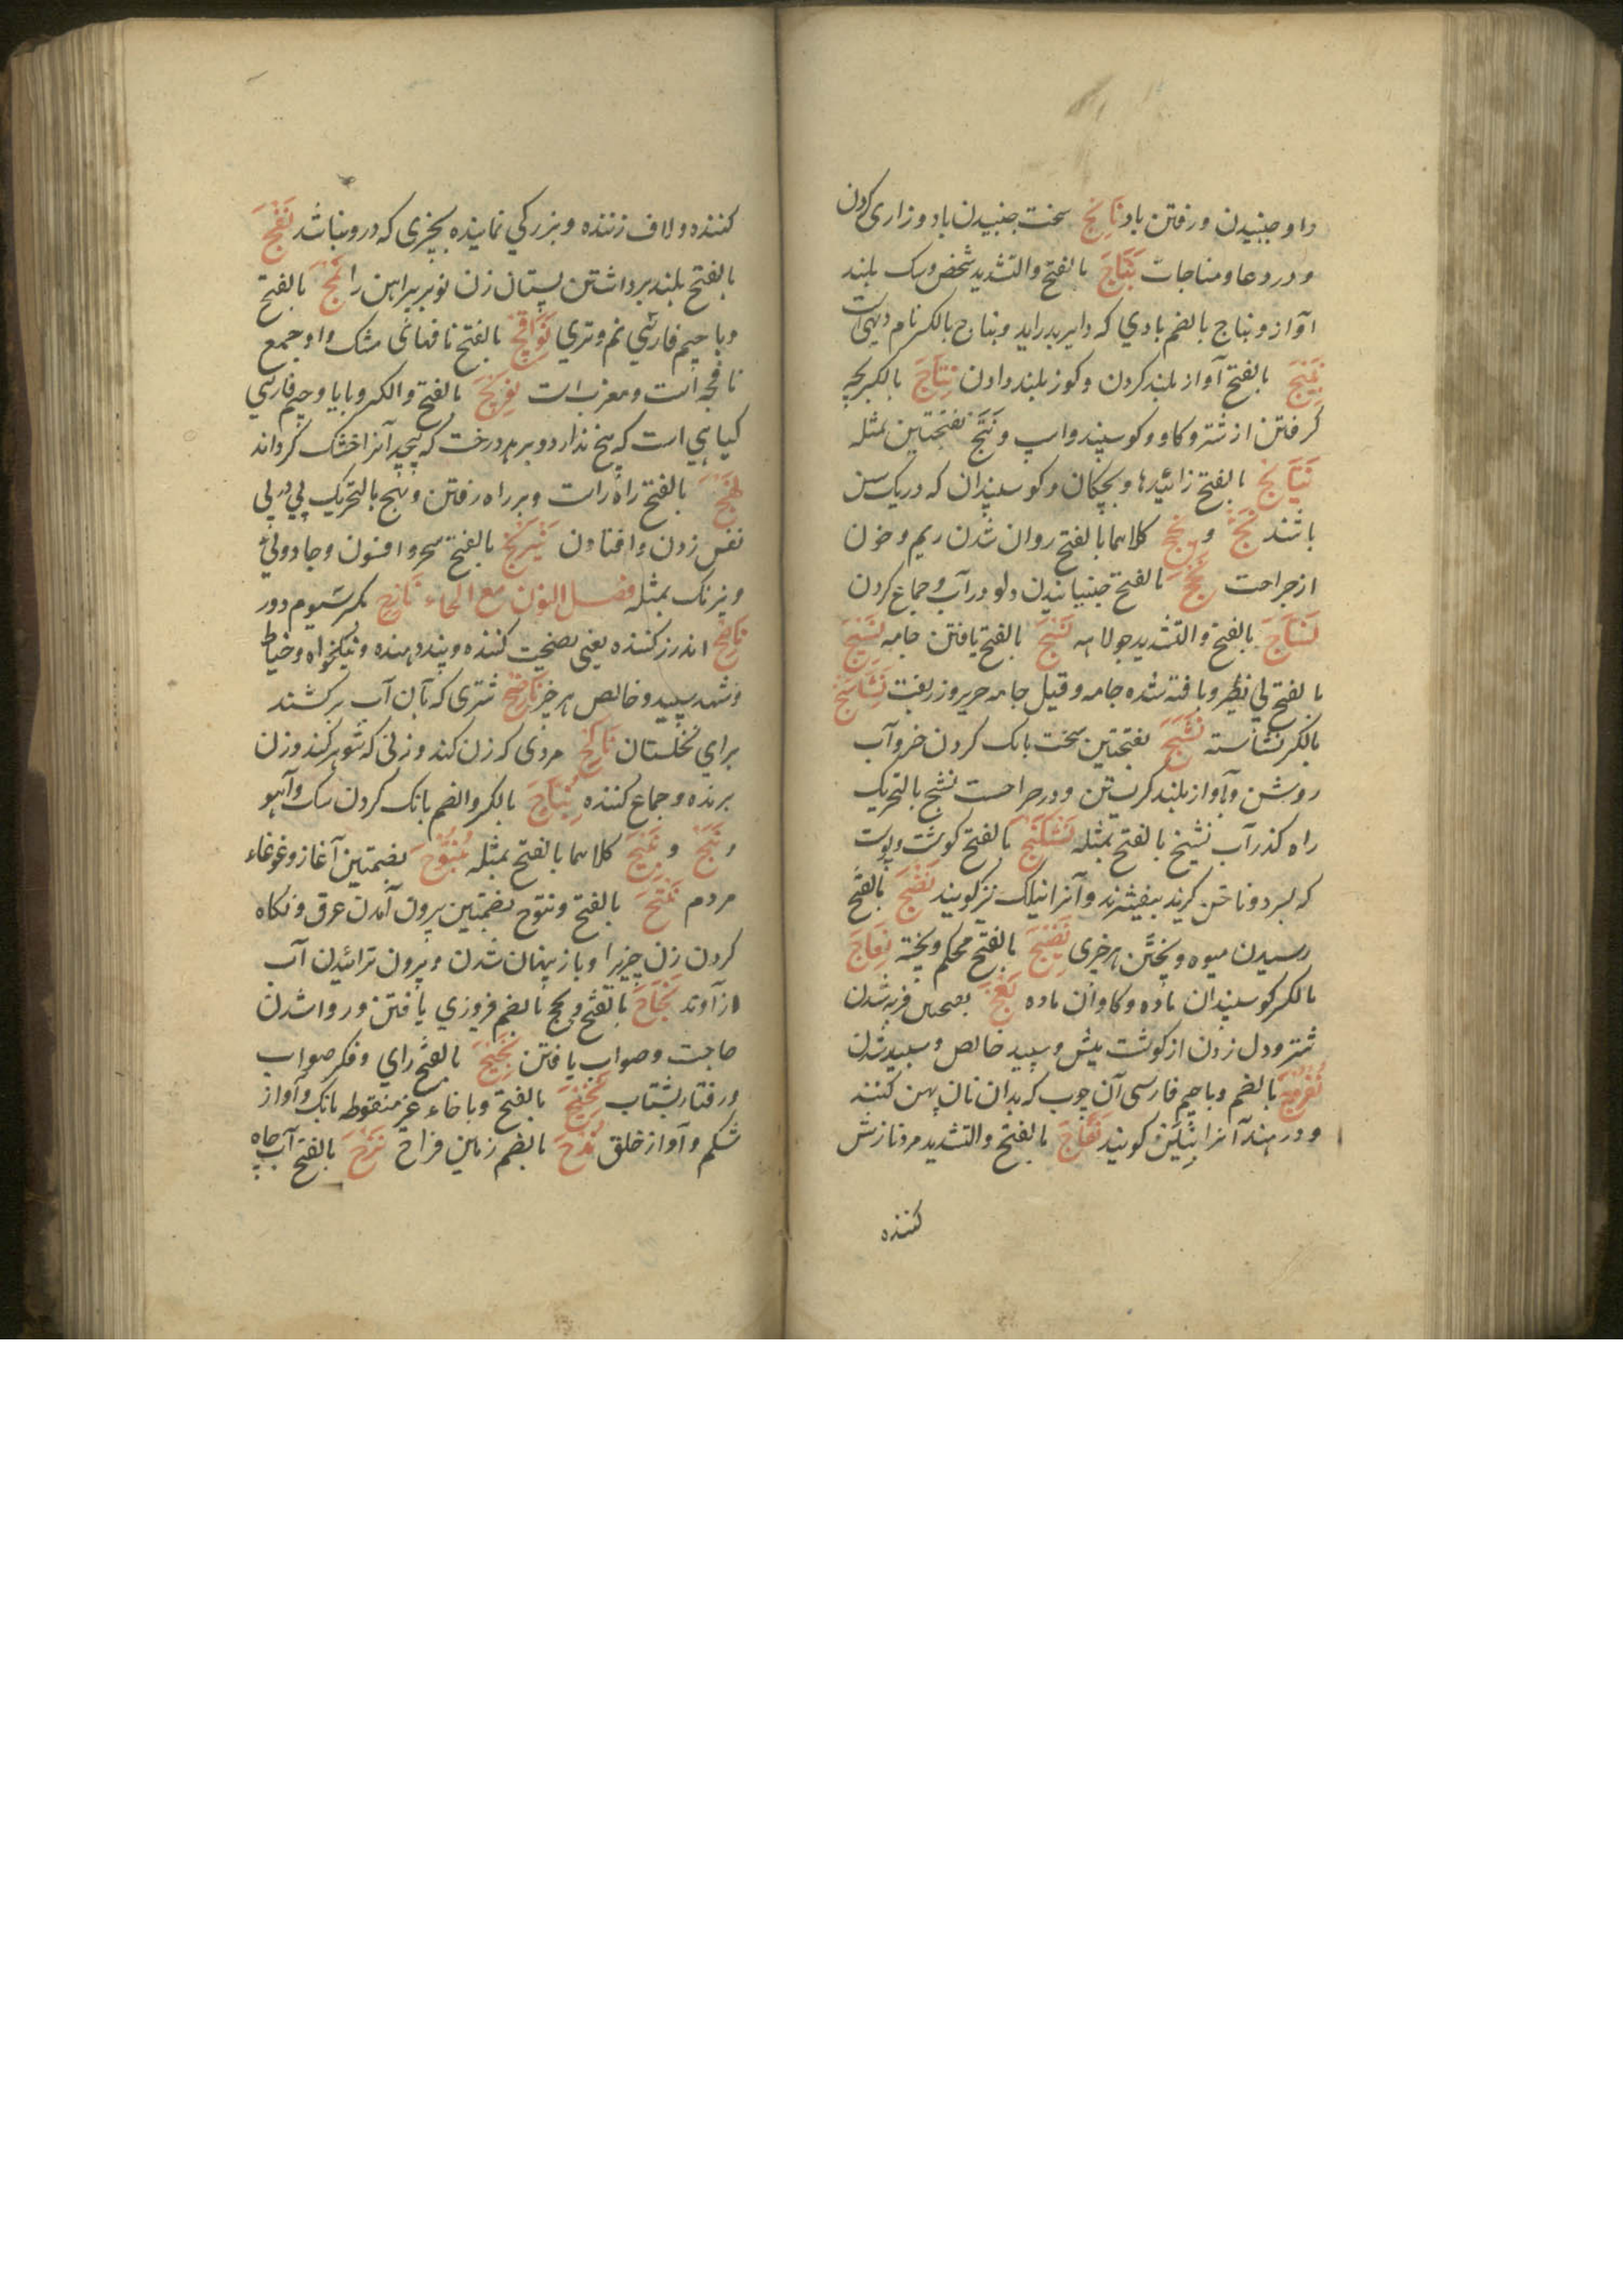 داو جنبیدن و رفتن باد نایج سخت جنبیدن باد و زاری کردن
و در دعا و مناجات نباج بالفتح والتشدید شخص و سک بلند
آواز و نباج بالضم بادی که از دبر براید و نباج بالکسر نام دیهی است
نبیج بالفتح آواز بلند کردن و کوز بلند دادن نتاج بالکسر بچه
کرفتن از شتر و کاو و کوسپند و اسپ و نتج بفتحتین بمثله
نتایج بالفتح زائیدها و بچکان و کوسپندان که در یک سن
باشند نج و نجیج کلاهما بالفتح روان شدن ریم و خون
از جراحت نخج بالفتح جنبانیدن دلو در آب و جماع کردن
نساج بالفتح والتشدید جولاهه نسج بالفتح بافتن جامه نسیج
بالفتح بی نظیر و بافته شده جامه و قیل جامه حریر و زربفت نشاستج
بالکسر نشاسته نشج بفتحتین سخت بانک کردن خر و آب
روشن و بآواز بلند کریستن و در جراحت نشج بالتحریک
راه کذر آب نشیج بالفتح بمثله نشکنج بالفتح کوشت و پوست
که بسر دو ناخن کیرند بیفشرند و آنرا نیلک نیز کویند نضج بالفتح
رسیدن میوه و پختن هر چیزی نضیج بالفتح محکم و پخته نعاج
بالکسر کوسپندان ماده و کاوان ماده نعج بفتحتین فربه شدن
شتر و دل زدن از کوشت میش و سپید خالص و سپید شدن
نغروج بالضم و با جیم فارسی آن چوب که بدان نان پهن کنند
و در هند آنرا بیلن کویند نفاج بالفتح والتشدید مرد نازش
کننده
کننده و لاف زننده و بزرکی نماینده بچیزی که درو نباشد نفج
بالفتح بلند برداشتن پستان زن نوبر پیراهن را نمج بالفتح
و با جیم فارسی نم و تری نوافج بالفتح نافهای مشک و او جمع
نافجه است و معرب است نویج بالفتح والکسر و بایا و جیم فارسی
کیاهی است که بیخ ندارد و بر هر درخت که پیچد آنرا خشک کرداند
نهج بالفتح راه راست و بر راه رفتن و نهج بالتحریک پی در پی
نفس زدن و افتادن نیرنج بالفتح سحر و افسون و جادوئی
و نیرنک بمثله فصل النون مع الحاء نازح بکسر سیوم دور
ناصح اندرز کننده یعنی نصیحت کننده و پند دهنده و نیکخواه و خیاط
و شهد سپید و خالص هر چیز ناضح شتری که بآن آب برکشند
برای نخلستان ناکح مردی که زن کند و زنی که شوهر کند و زن
برنده و جماع کننده نباح بالکسر والضم بانک کردن سک و آهو
و نبح و نبیح کلاهما بالفتح بمثله نبوح بضمتین آغاز و غوغاء
مردم نتح بالفتح و نتوح بضمتین بیرون آمدن عرق و نکاه
کردن زن چیزیرا و باز پنهان شدن و بیرون ترائیدن آب
از آوند نجاح بالفتح و نجح بالضم فیروزی یافتن و روا شدن
حاجت و صواب یافتن نجیح بالفتح رای و فکر صواب
و رفتار بشتاب نحیح بالفتح و با خاء غیر منقوطه بانک و آواز
شکم و آواز خلق ندح بالضم زمین فراخ نزح بالفتح آب چاه